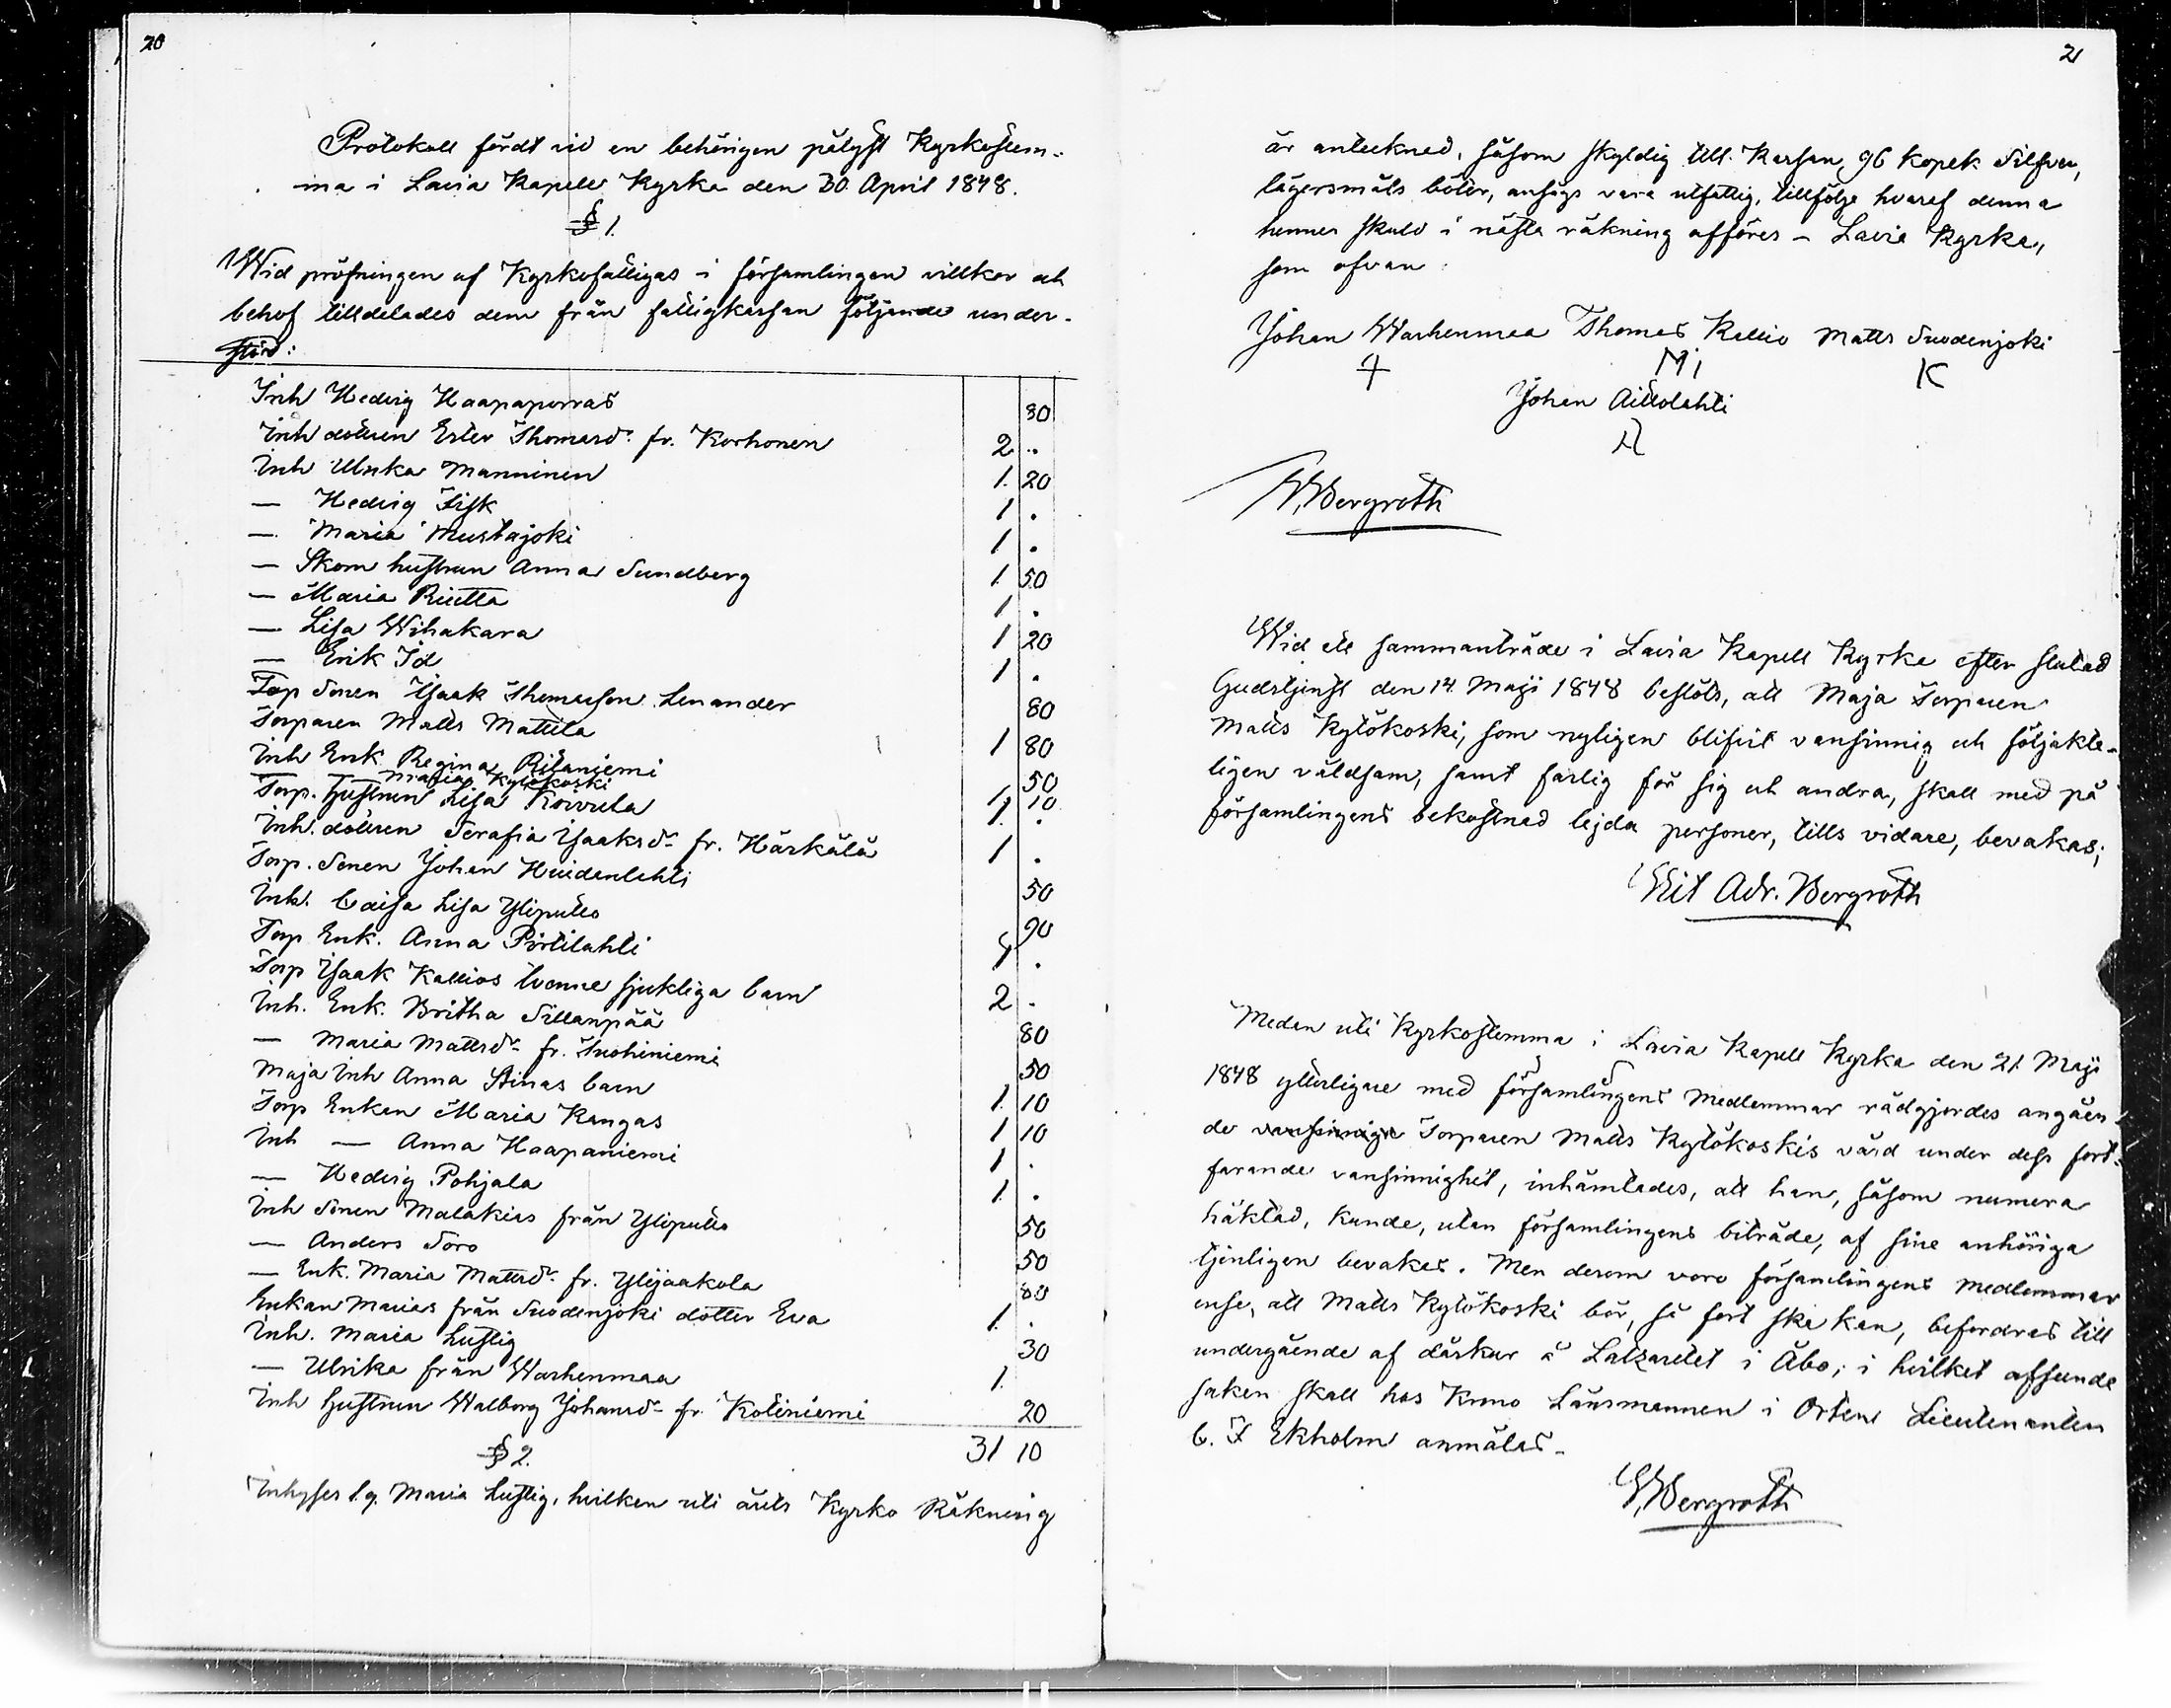 20
Protokoll fördt vid en behörigen pålyst Kyrkostem-
ma i Lavia Kapell Kyrka den 30 April 1848.
§ 1.
Wid pröfningen af Kyrkofattigas i församlingen villkor och
behof tilldelades dem från fattigkassan följande under-
stöd:
Inh Hedvig Haapaporras 80
Inh dottren Ester Thomasdr fr. Korhonen 2 .
Inh Ulrika Manninen 1. 20
— Hedvig Fisk 1 .
— Maria Mustajoki 1 .
— Skom hustrun Anna Sundberg 1. 50
— Maria Riutta 1 .
— Lisa Wihakara 1 20
— Erik Id 1 .
Torp Sonen Isaak Thomasson Lenander 80
Torparen Matts Mattila 1 80
Inh Enk. Regina Ritaniemi 50
Maria Kylökoski 1 10
Torp. Hustrun Lisa Koivula 1. .
Inh. dottren Serafia Isaksdr fr. Härkälä 1 .
Torp. Sonen Johan Hiidenlahti 50
Inh. Caisa Lisa Ylipules 90
Torp Enk. Anna Pörtilahti 1 .
Torp Isaak Kallios tvenne sjukliga barn 2 .
Inh. Enk. Britha Sillanpää 80
— Maria Mattsdr fr. Suohiniemi 50
Maja Inh Anna Stinas barn 1. 10
Torp Enkan Maria Kangas 1 10
Inh — Anna Haapaniemi 1 .
— Hedvig Pohjala 1. .
Inh Sonen Malakias från Ylipules 50
— Anders Soro 50
— Enk. Maria Mattsdr fr. Ylijaakola 80
Enkan Marias från Suodenjoki dotter Eva 1. .
Inh. Maria Lustig 30
— Ulrika från Warhenmaa 1.
Inh Hustrun Walborg Johansdr fr. Kotiniemi 20
31 10
§ 2.
Inhyses l.q. Maria Lustig, hvilken uti årets Kyrko Räkning
21
är antecknad, såsom skyldig till Kassan 96 kopek Silfver,
lägersmåls böter, ansågs vara utfattig, tillfölje hvaraf denna
hennes skuld i nästa räkning afföres – Lavia Kyrka,
som ofvan:
Johan Warhenmaa Thomas Kallio Matts Suodenjoki
Johan Aittolahti
W. Bergroth
Wid ett sammanträde i Lavia Kapell Kyrka efter slutad
Gudstjenst den 14. Maji 1848 beslöts, att Maja Torparen
Matts Kylökoski, som nyligen blifvit vansinnig och följakte-
ligen våldsam, samt farlig för sig och andra, skall med på
församlingens bekostnad lejda personer, tills vidare, bevakas;
Wit Adr. Bergroth
Medan uti Kyrkostemma i Lavia Kapell Kyrka den 21. Maji
1848 ytterligare med församlingens Medlemmar rådgjordes angåen-
de vansinnige Torparen Matts Kylökoskis vård under dess fort-
farande vansinnighet, inhämtades, att han, såsom numera
häktad, kunde, utan församlingens biträde, af sine anhöriga
tjenligen bevakas. Men derom voro församlingens medlemmar
ense, att Matts Kylökoski bör, så fort ske kan, befordras till
undergående af dårkur å Latzarettet i Åbo; i hvilket afseende
saken skall hos Krono Länsmannen i Orten Lieutenanten
C. F Ekholm anmälas –
W. Bergroth